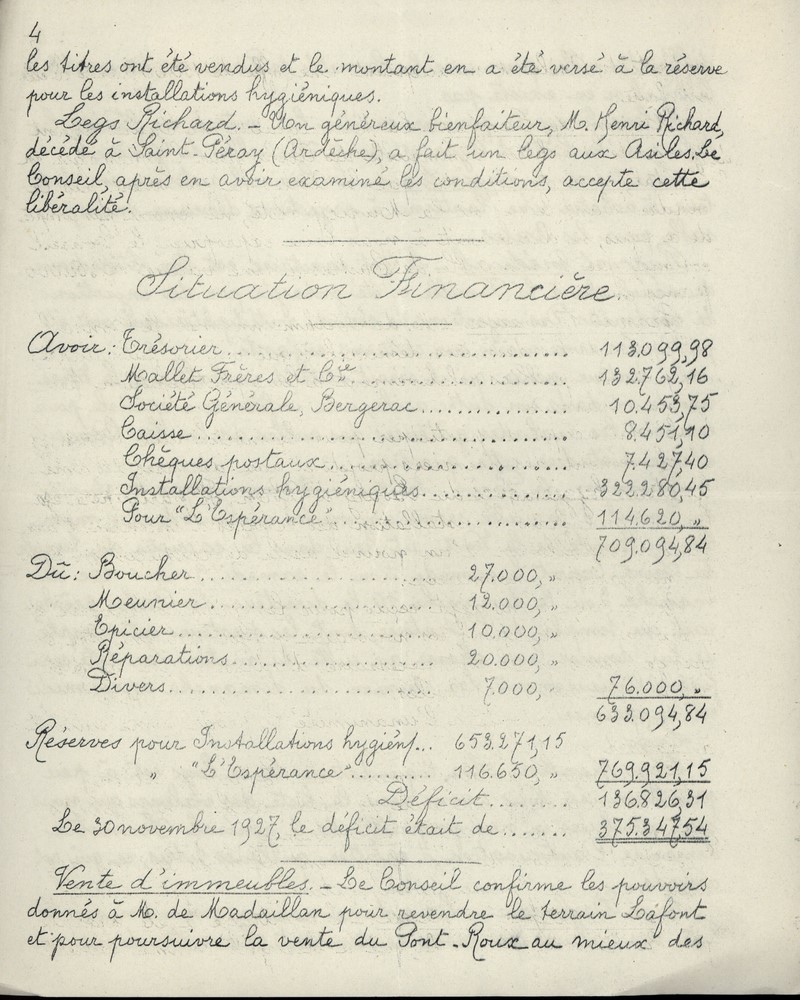 4
les titres ont été vendus et le montant en a été versé à la réserve
pour les installations hygiéniques.
Legs Richard. - Un généreux bienfaiteur, M. Henri Richard,
décédé à Saint-Péray (Ardèche), a fait un legs aux Asiles. Le
Conseil, après en avoir examiné les conditions, accepte cette
libéralité.
Situation Financière.
Avoir: Trésorier.................. 113.099,98
Mallet Frères et Cie.................. 132.762,16
Société Générale, Bergerac............. 10.453,75
Caisse.................. 8.451,10
Chèques postaux.................. 7.427,40
Installations hygiéniques............. 322.280,45
Pour "L'Espérance".................. 114.620, "
709.094,84
Dû: Boucher.................. 27.000, "
Meunier.................. 12.000, "
Epicier.................. 10.000, "
Réparations.................. 20.000, "
Divers.................. 7.000, " 76.000, "
633.094,84
Réserves pour Installations hygién/... 653.271,15
" "L'Espérance".......... 116.650, " 769.921,15
Déficit........ 136.826,31
Le 30 novembre 1927, le déficit était de....... 375.347,54
Vente d'immeubles. - Le Conseil confirme les pouvoirs
donnés à M. de Madaillan pour revendre le terrain Lafont
et pour poursuivre la vente du Pont-Roux au mieux des